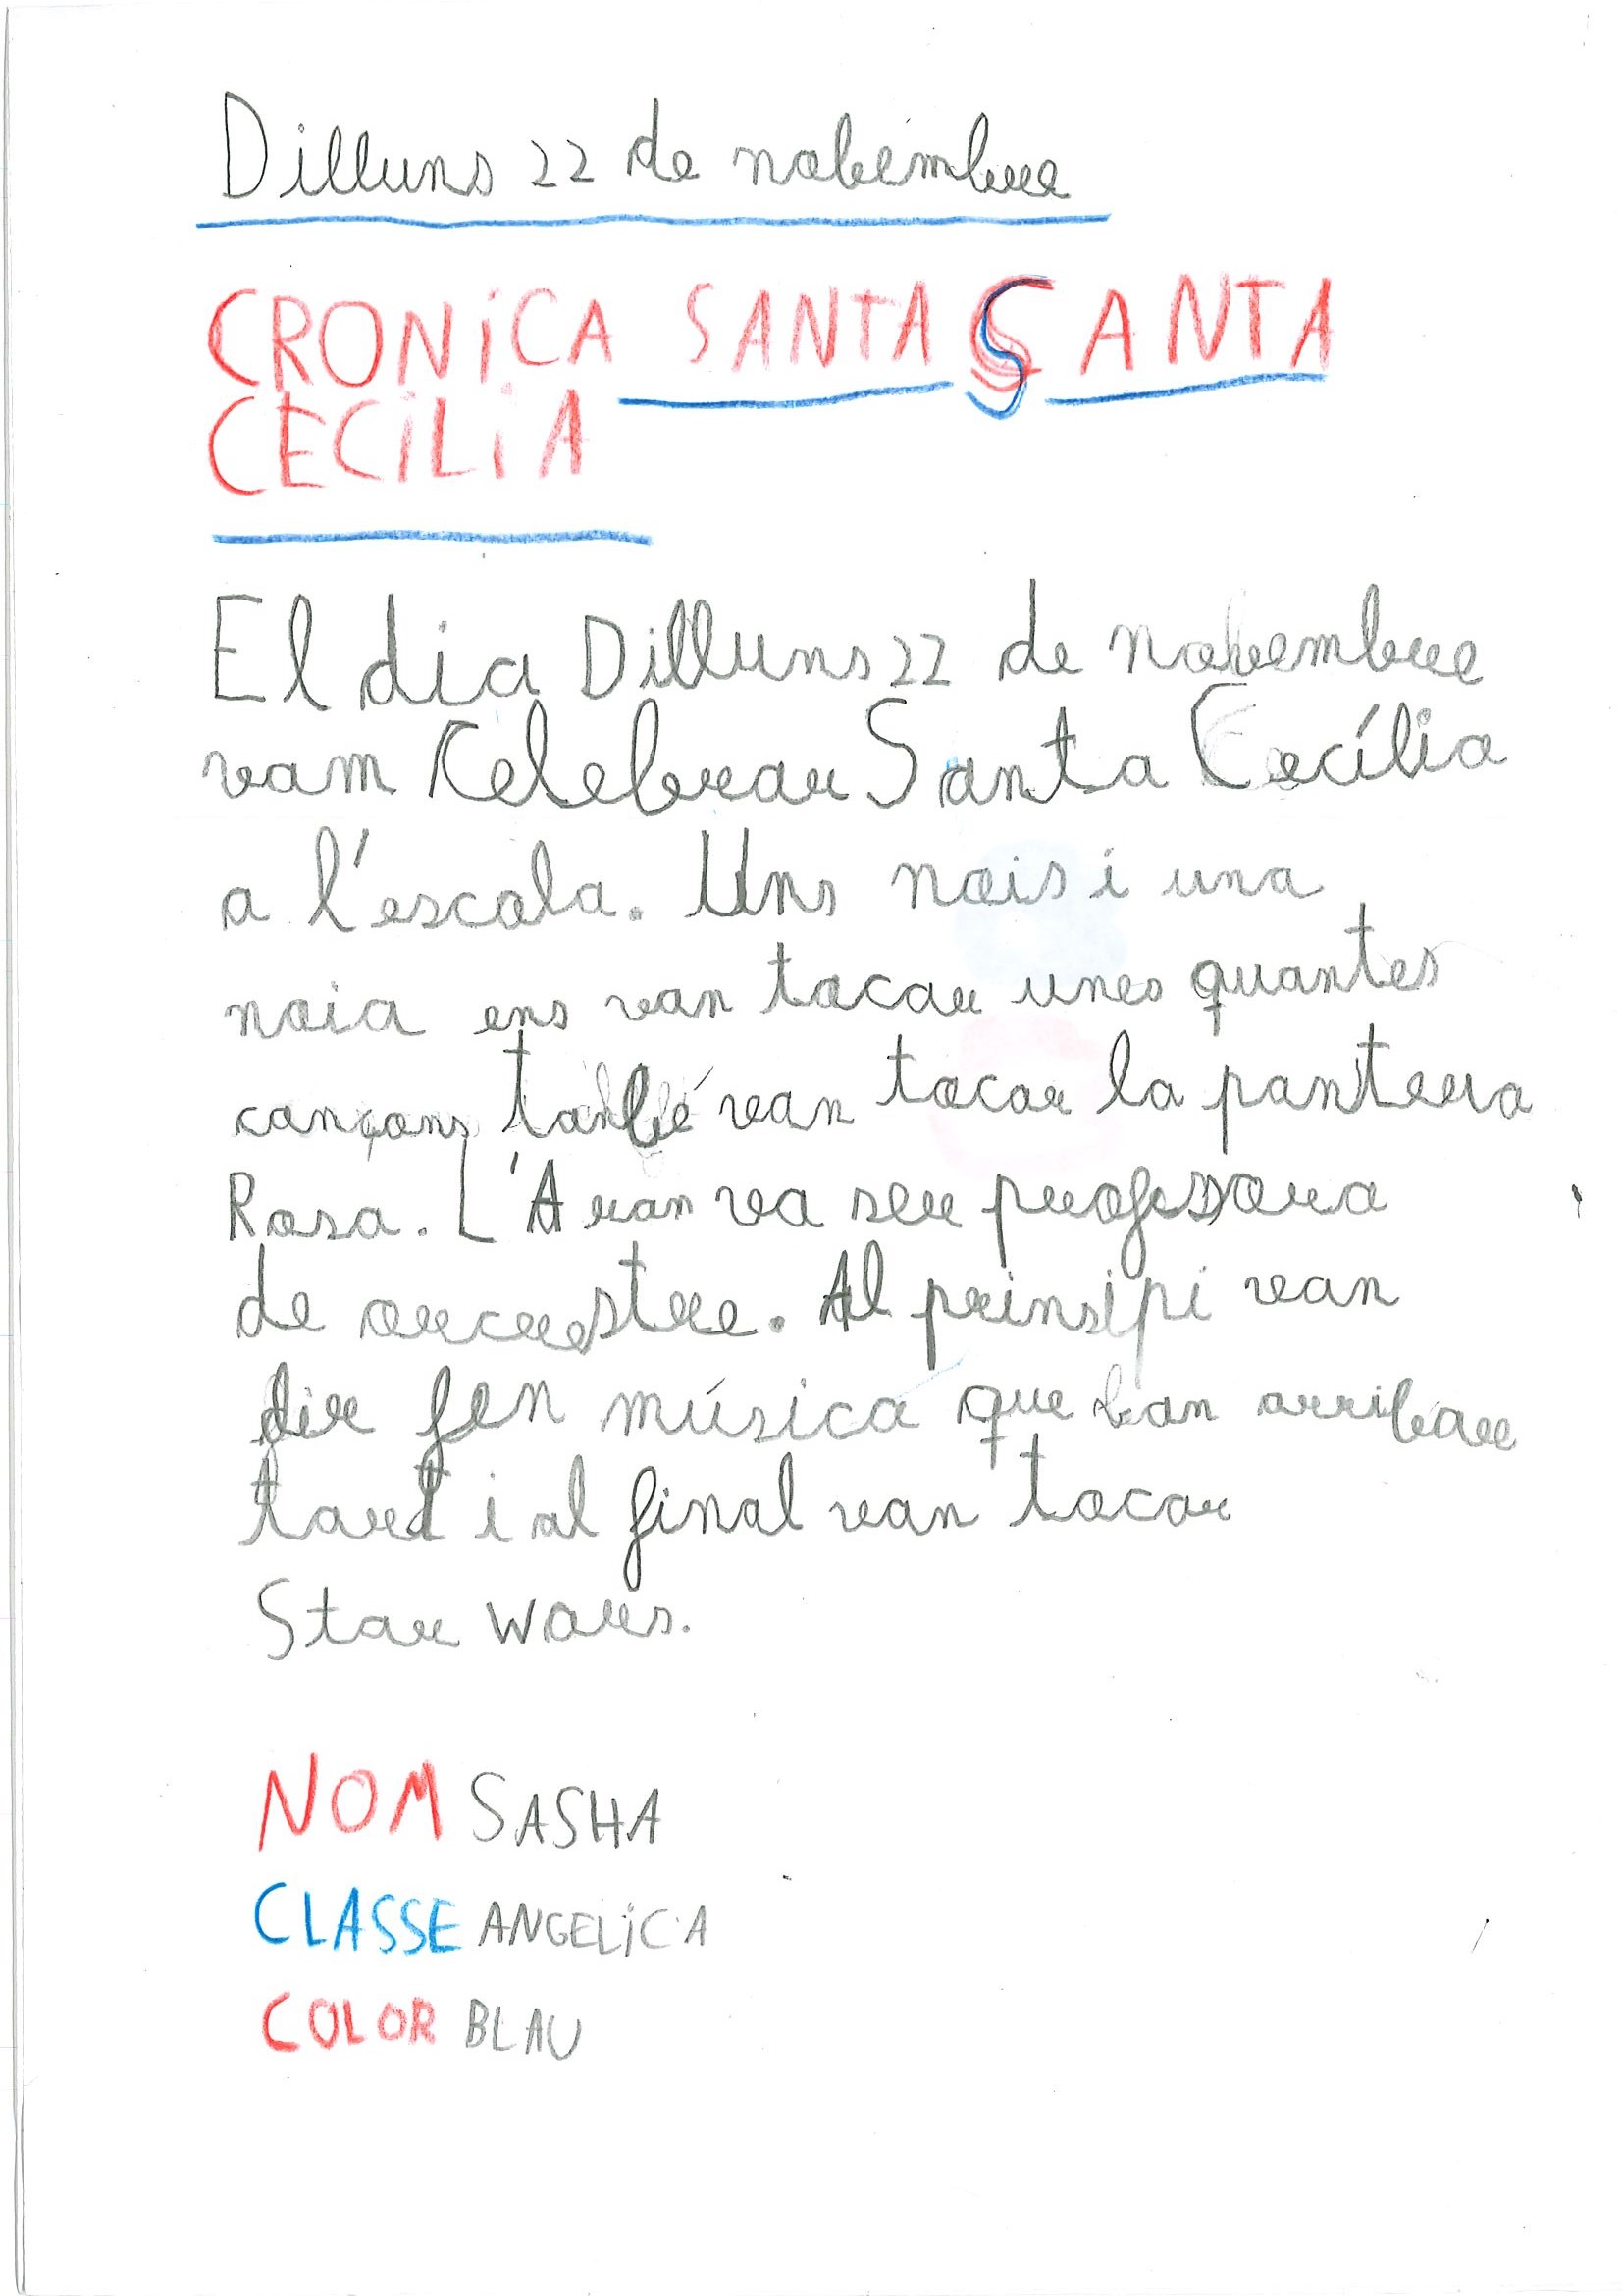 Dilluns 22 de nobembre
CRONICA SANTA SANTA
CECILIA
El dia Dilluns 22 de nobembre
vam Celebrar Santa Cecília
a l'escola. Uns nois i una
noia ens van tocar unes quantes
cançons també van tocar la pantera
Rosa. L'Aran va ser professora
de orcrestre. Al prinsipi van
dir fen música que ban arribar
tard i al final van tocar
Star Wars.
NOM SASHA
CLASSE ANGELICA
COLOR BLAU